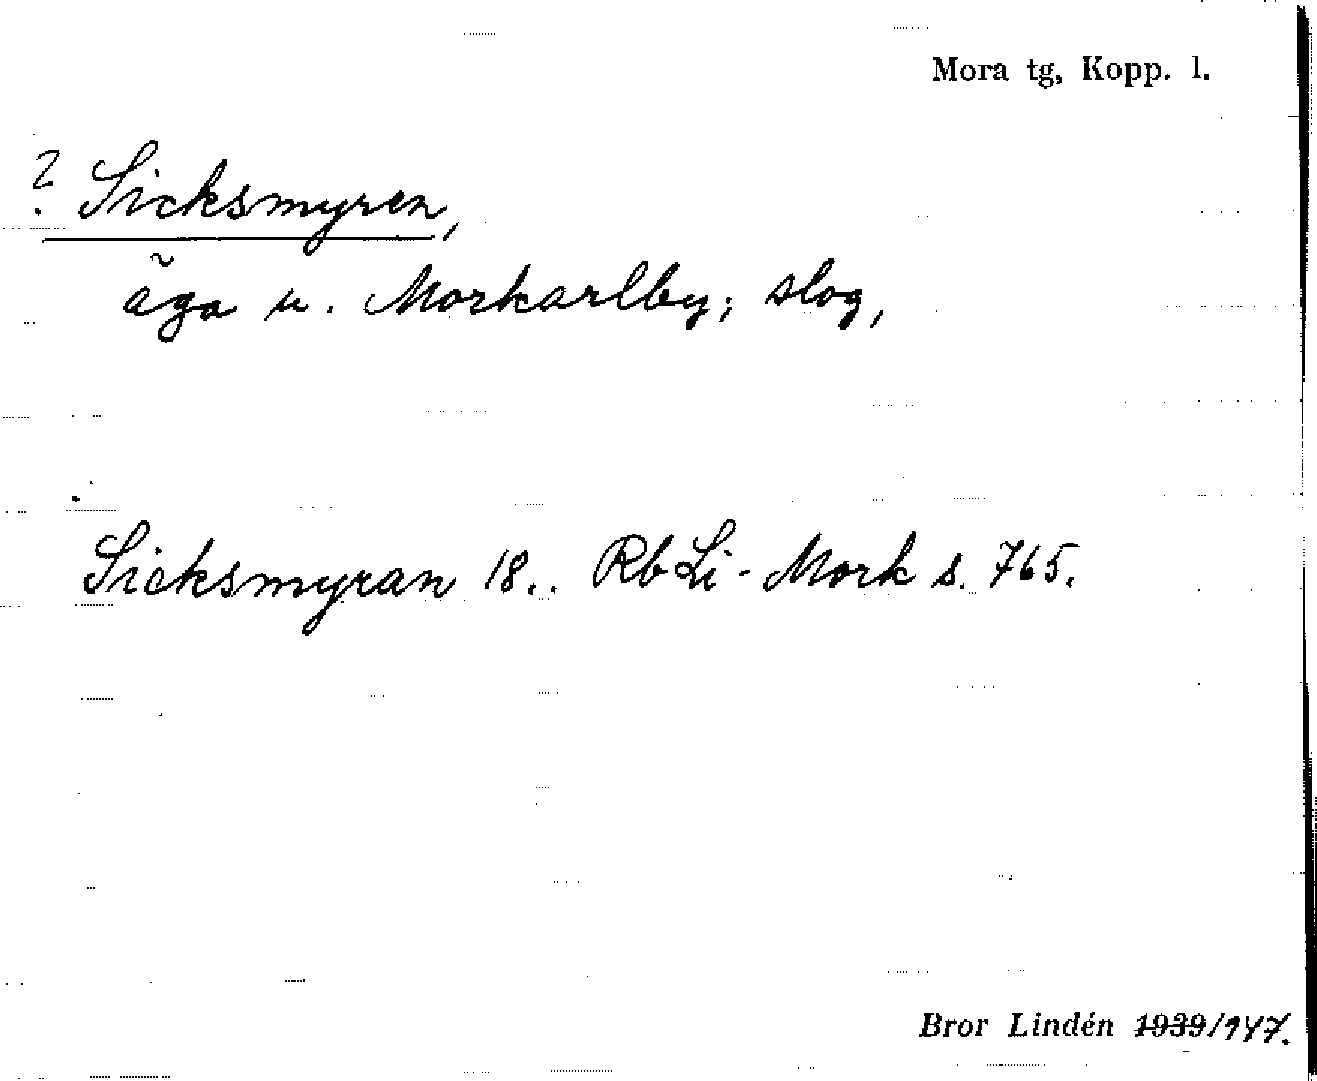 Mora tg, Kopp. l.
? Sicksmyren,
äga u. Morkarlby; slog,
Sicksmyran 18.. Rb Li - Mork s. 765.
Bror Lindén 1939/1947.